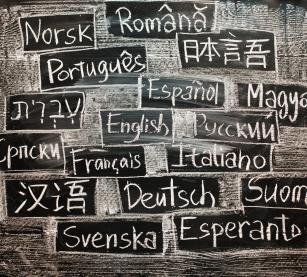 Română
Norsk
日本語
Português
Español
Magya
עִבְרִית
English
Русский
Српски
Français
Italiano
汉语
Deutsch
Suom
Svenska
Esperanto